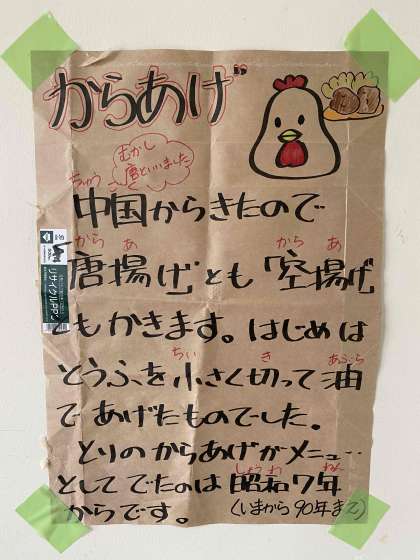 からあげ
むかし
唐といいました
ちゅう
中国からきたので
から あ から あ
唐揚げとも「空揚げ
ともかきます。はじめは
ちい き あぶら
とうふを小さく切って油
であげたものでした。
とりのからあげがメニュー
しょうわ ねん
としてでたのは昭和7年
からです。(いまから90年まえ)
リサイクル